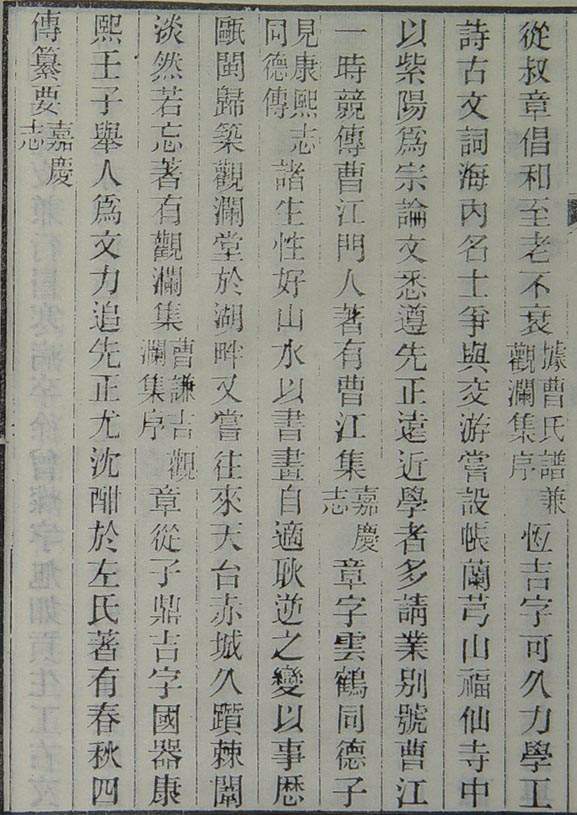 從叔章倡和至老不衰據曹氏譜兼觀瀾集序恆吉字可久力學工
詩古文詞海内名士爭與交游嘗設帳蘭芎山福仙寺中
以紫陽爲宗論文悉遵先正遠近學者多請業別號曹江
一時競傳曹江門人著有曹江集嘉慶志章字雲鶴同德子
見康熙志同德傳諸生性好山水以書畫自適耿逆之變以事歷
甌閩歸築觀瀾堂於湖畔又嘗往來天台赤城久躓棘闈
淡然若忘著有觀瀾集曹謙吉觀瀾集序章從子鼎吉字國器康
熙壬子舉人爲文力追先正尤沈酣於左氏著有春秋四
傳纂要嘉慶志